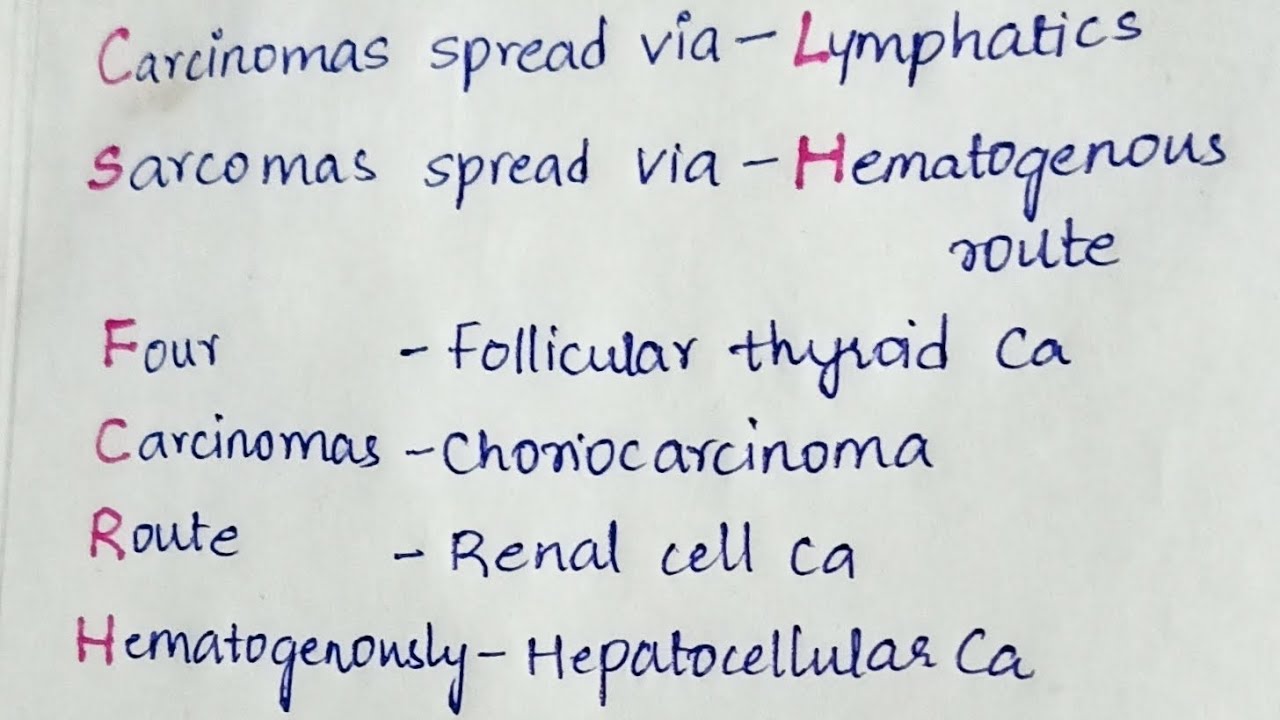 Carcinomas spread via - Lymphatics
Sarcomas spread via - Hematogenous
route
Four - Follicular thyroid Ca
Carcinomas - Choriocarcinoma
Route - Renal cell Ca
Hematogenously - Hepatocellular Ca